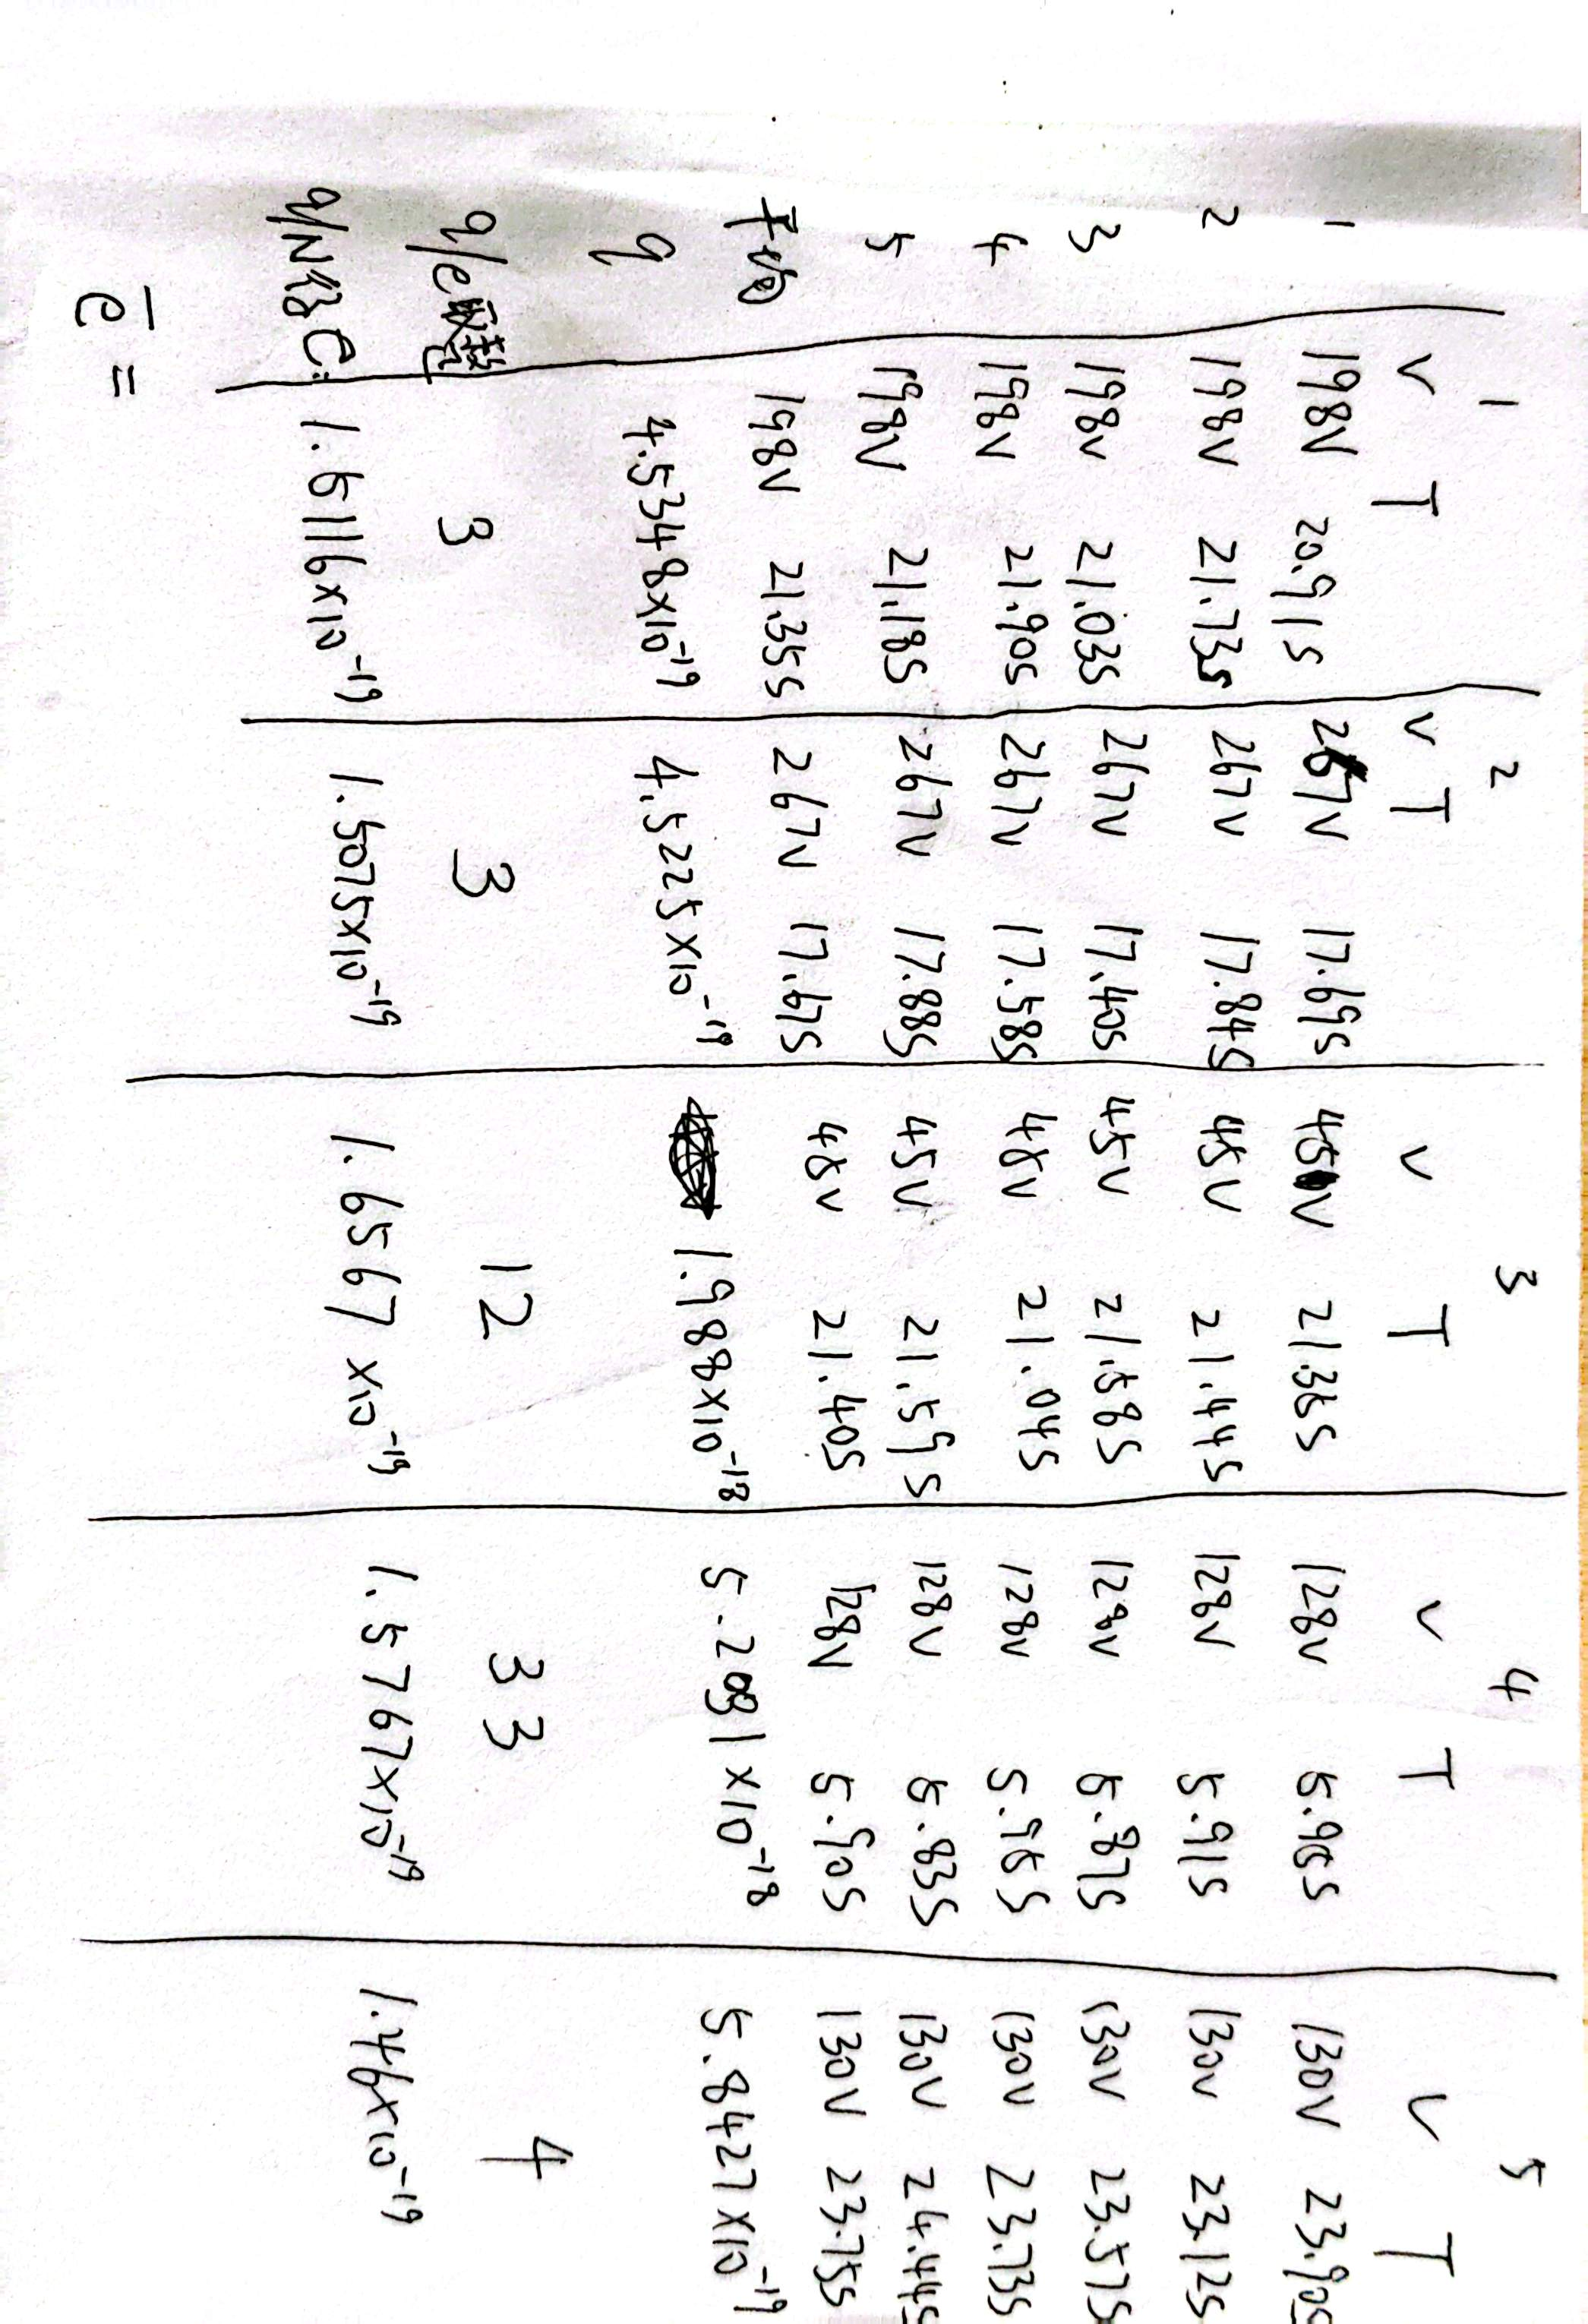 1 2 3 4 5
V T V T V T V T V T
1 198V 20.91s 267V 17.69s 45V 21.35s 128V 5.95s 130V 23.90s
2 198V 21.73s 267V 17.84s 45V 21.44s 128V 5.91s 130V 23.12s
3 198V 21.03s 267V 17.40s 45V 21.58s 128V 5.87s 130V 23.57s
4 198V 21.90s 267V 17.58s 45V 21.04s 128V 5.96s 130V 23.73s
5 198V 21.18s 267V 17.88s 45V 21.59s 128V 5.83s 130V 24.44s
平均 198V 21.35s 267V 17.67s 45V 21.40s 128V 5.90s 130V 23.75s
q 4.5348×10⁻¹⁹ 4.5225×10⁻¹⁹ 1.988×10⁻¹⁸ 5.2031×10⁻¹⁸ 5.8427×10⁻¹⁹
q/e取整 3 3 12 33 4
q/N得e: 1.5116×10⁻¹⁹ 1.5075×10⁻¹⁹ 1.6567×10⁻¹⁹ 1.5767×10⁻¹⁹ 1.46×10⁻¹⁹
e̅ =